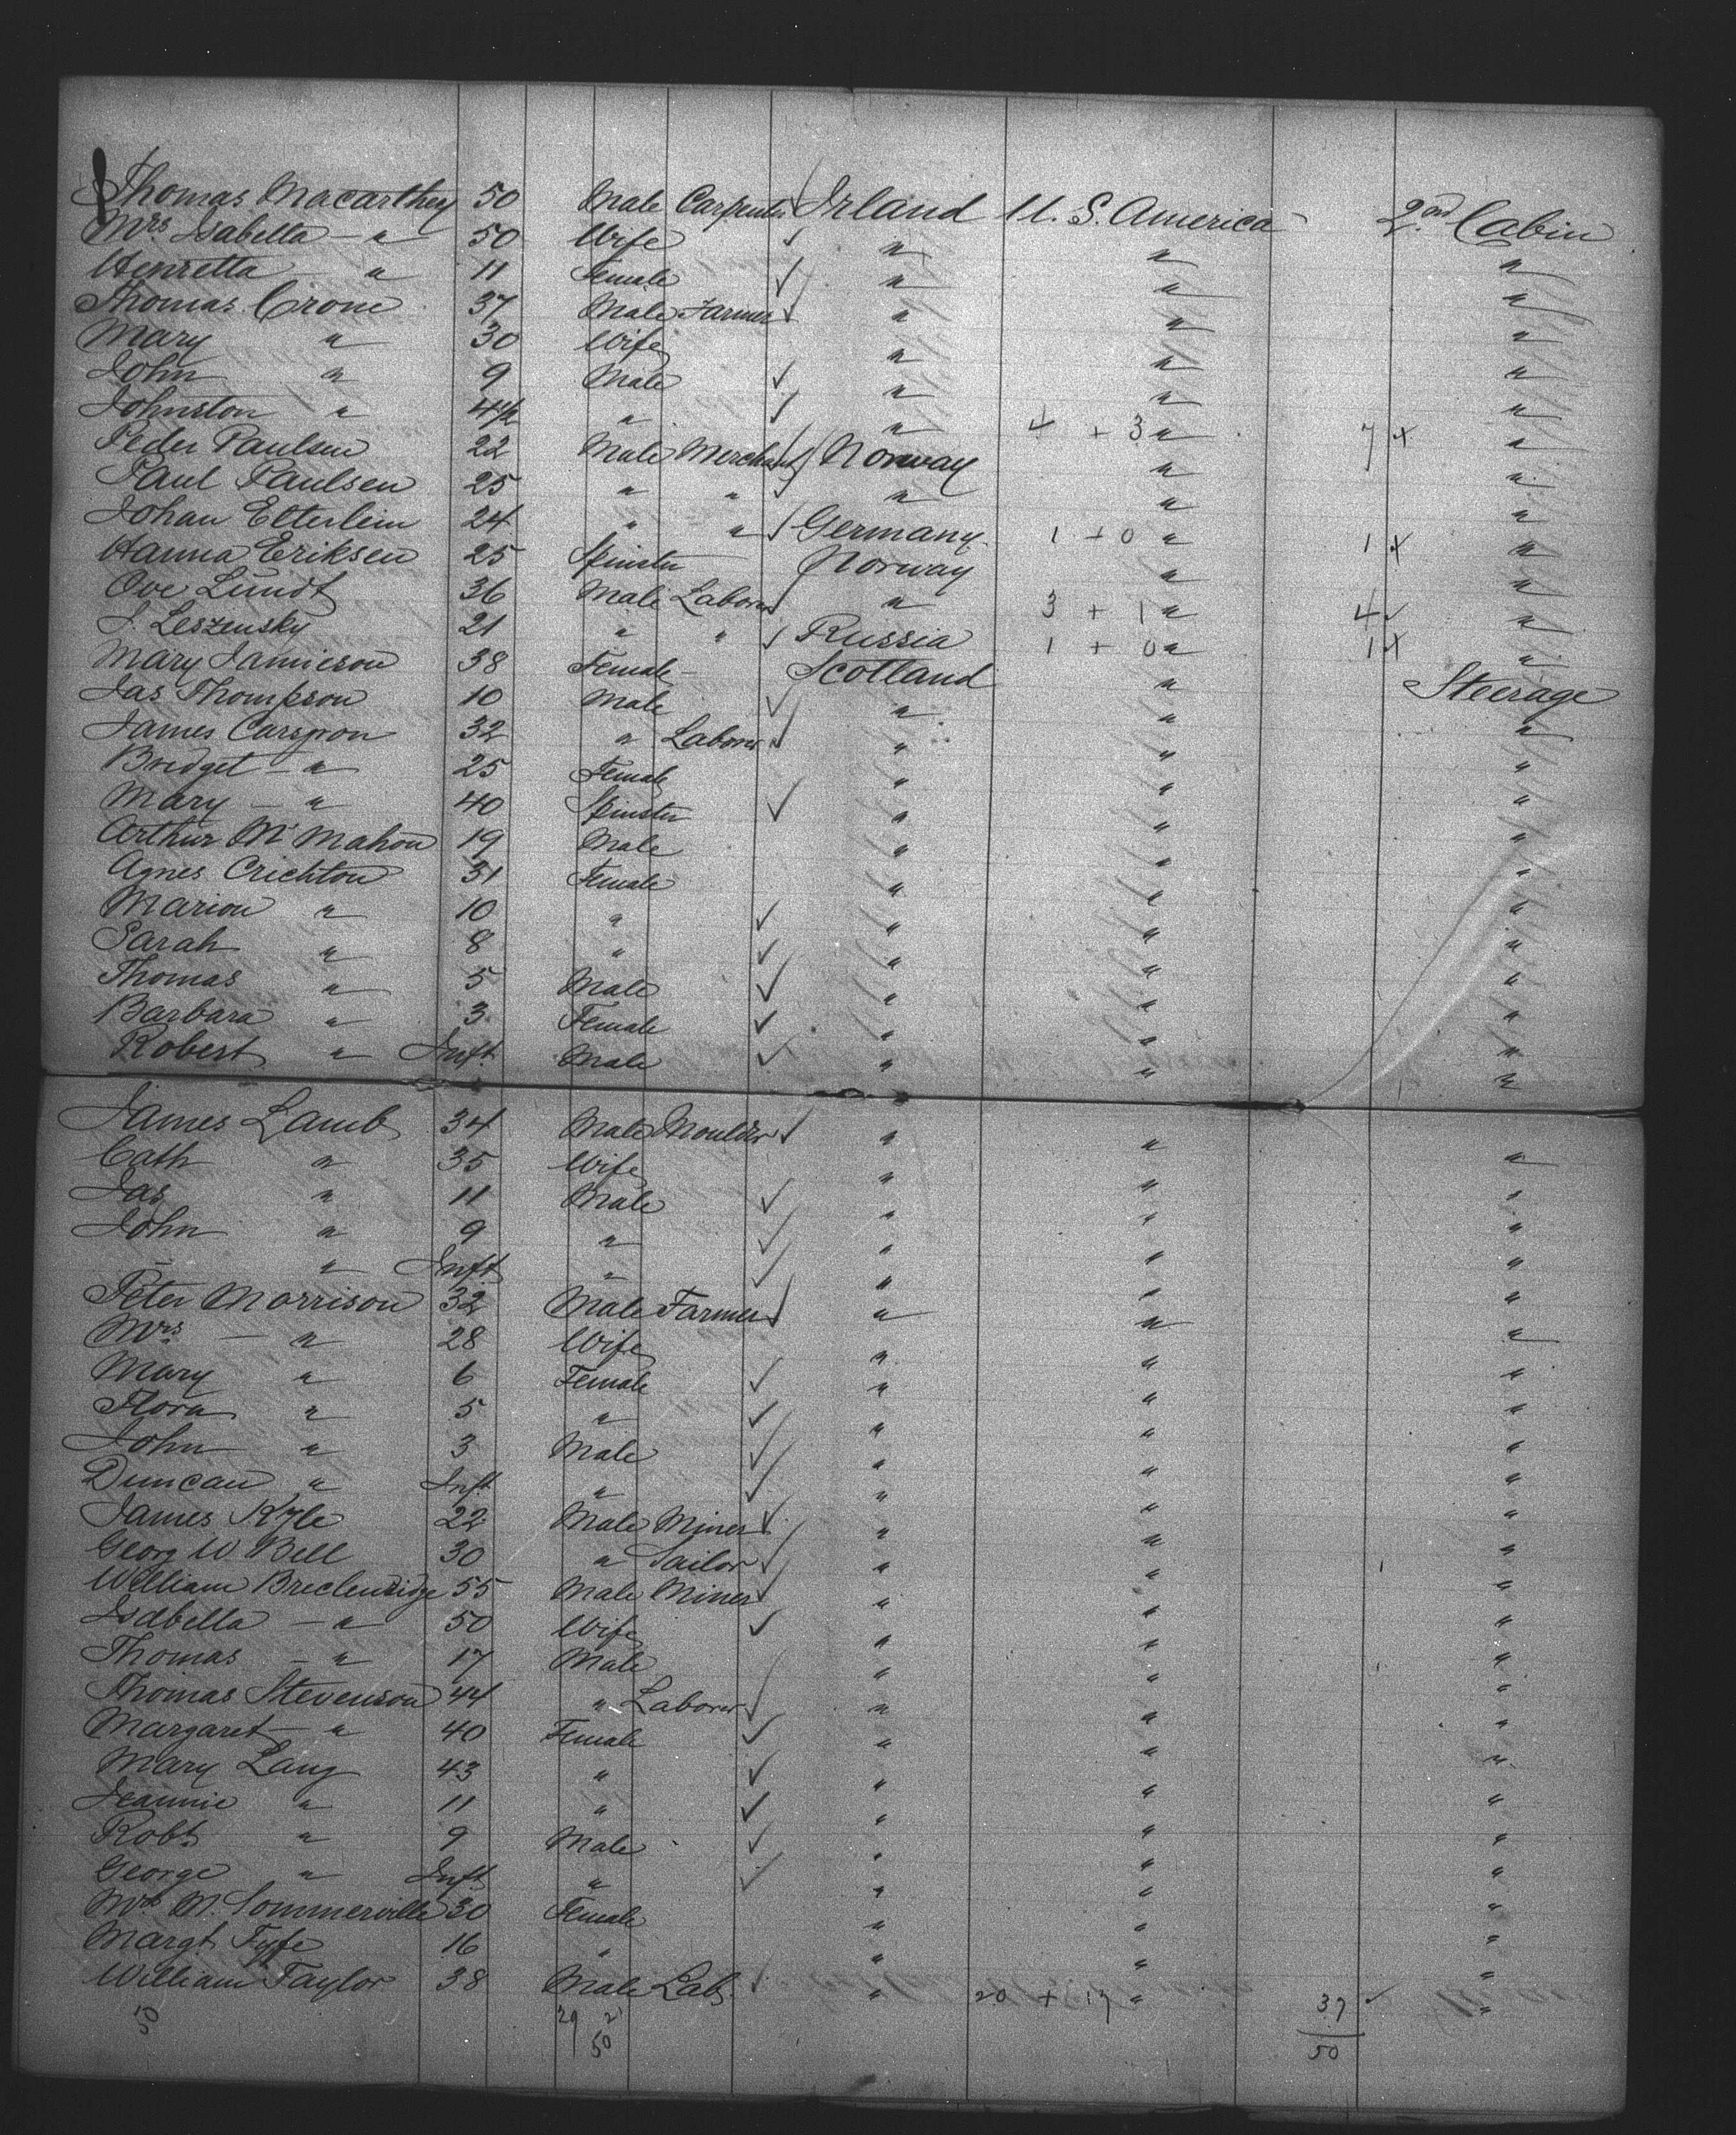 Thomas Macarthey 50 Male Carpenter Irland U. S. America 2nd Cabin
Mrs Isabella — " 50 Wife " " "
Henretta " 11 Female " " "
Thomas Crone 37 Male Farmer " " "
Mary " 30 Wife " " "
John " 9 Male " " "
Johnston " 4½ " " 4 + 3 " 7 x "
Peder Paulsen 22 Male Merchant Norway " "
Paul Paulsen 25 " " " " "
Johan Etterlein 24 " " Germany 1 + 0 " 1 x "
Hanna Eriksen 25 Spinster Norway " "
Ove Lundt 36 Male Laborer " 3 + 1 " 4 ✓ "
J. Leszensky 21 " " Russia 1 + 0 " 1 x "
Mary Jamieson 38 Female Scotland " Steerage
Jas Thompson 10 Male " " "
James Carspon 32 " Laborer " " "
Bridget — " 25 Female " " "
Mary — " 40 Spinster " " "
Arthur Mc Mahon 19 Male " " "
Agnes Crichton 31 Female " " "
Marion " 10 " " " "
Sarah " 8 " " " "
Thomas " 5 Male " " "
Barbara " 3 Female " " "
Robert " Inft. Male " " "
James Lamb 34 Male Moulder " " "
Cath " 35 Wife " " "
Jas " 11 Male " " "
John " 9 " " " "
— " Inft " " " "
Peter Morrison 32 Male Farmer " " "
Mrs — " 28 Wife " " "
Mary " 6 Female " " "
Flora " 5 " " " "
John " 3 Male " " "
Duncan " Inft " " " "
James Kyle 22 Male Miner " " "
Georg W. Bell 30 " Sailor " " "
William Breclenridge 55 Male Miner " " "
Isabella — " 50 Wife " " "
Thomas — " 17 Male " " "
Thomas Stevenson 44 " Laborer " " "
Margaret — " 40 Female " " "
Mary Lang 43 " " " "
Jeannie " 11 " " " "
Robt. " 9 Male " " "
George " Inft " " " "
Mrs M. Sommerville 30 Female " " "
Margt Fyfe 16 " " " "
William Taylor 38 Male Lab. " 20 + 17 " 37 ✓ "
50 29 21 50 50